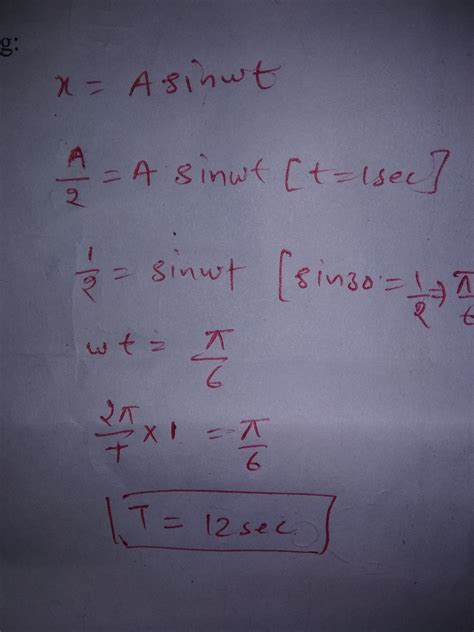 g:
x = A sinwt
A/2 = A sinwt [t=1sec]
1/2 = sinwt [sin30 = 1/2 ⇒ π/6
wt = π/6
2π/T × 1 = π/6
T = 12sec